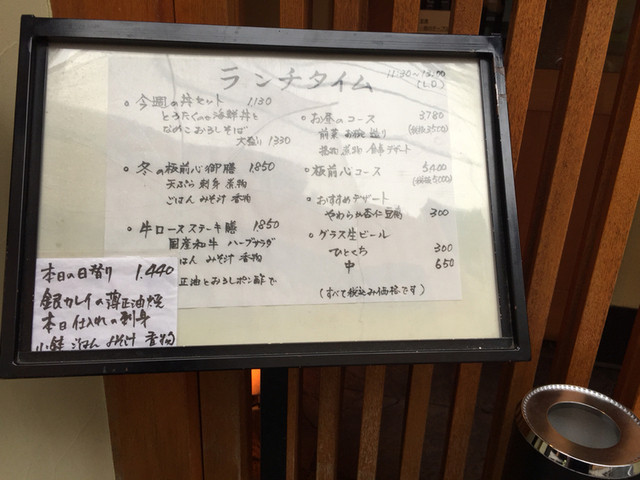 ランチタイム
11:30~
(L.O.)
・今週の丼セット 1130
とろたくの海鮮丼と
なめこおろしそば
大盛り 1330
・冬の板前心御膳 1850
天ぷら 刺身 煮物
ごはん みそ汁 香物
・牛ロースステーキ膳 1850
国産和牛 ハーブサラダ
ごはん みそ汁 香物
正油とおろしポン酢で
本日の日替り 1.440
銀カレイの薄正油焼
本日仕入れの刺身
小鉢 ごはん みそ汁 香物
・お昼のコース 3,780
前菜 お椀 造り (税抜3500)
焼物 煮物 食事 デザート
・板前心コース 5,400
(税抜5000)
・おすすめデザート
やわらか杏仁豆腐 300
・グラス生ビール
ひとくち 300
中 650
(すべて税込み価格です)